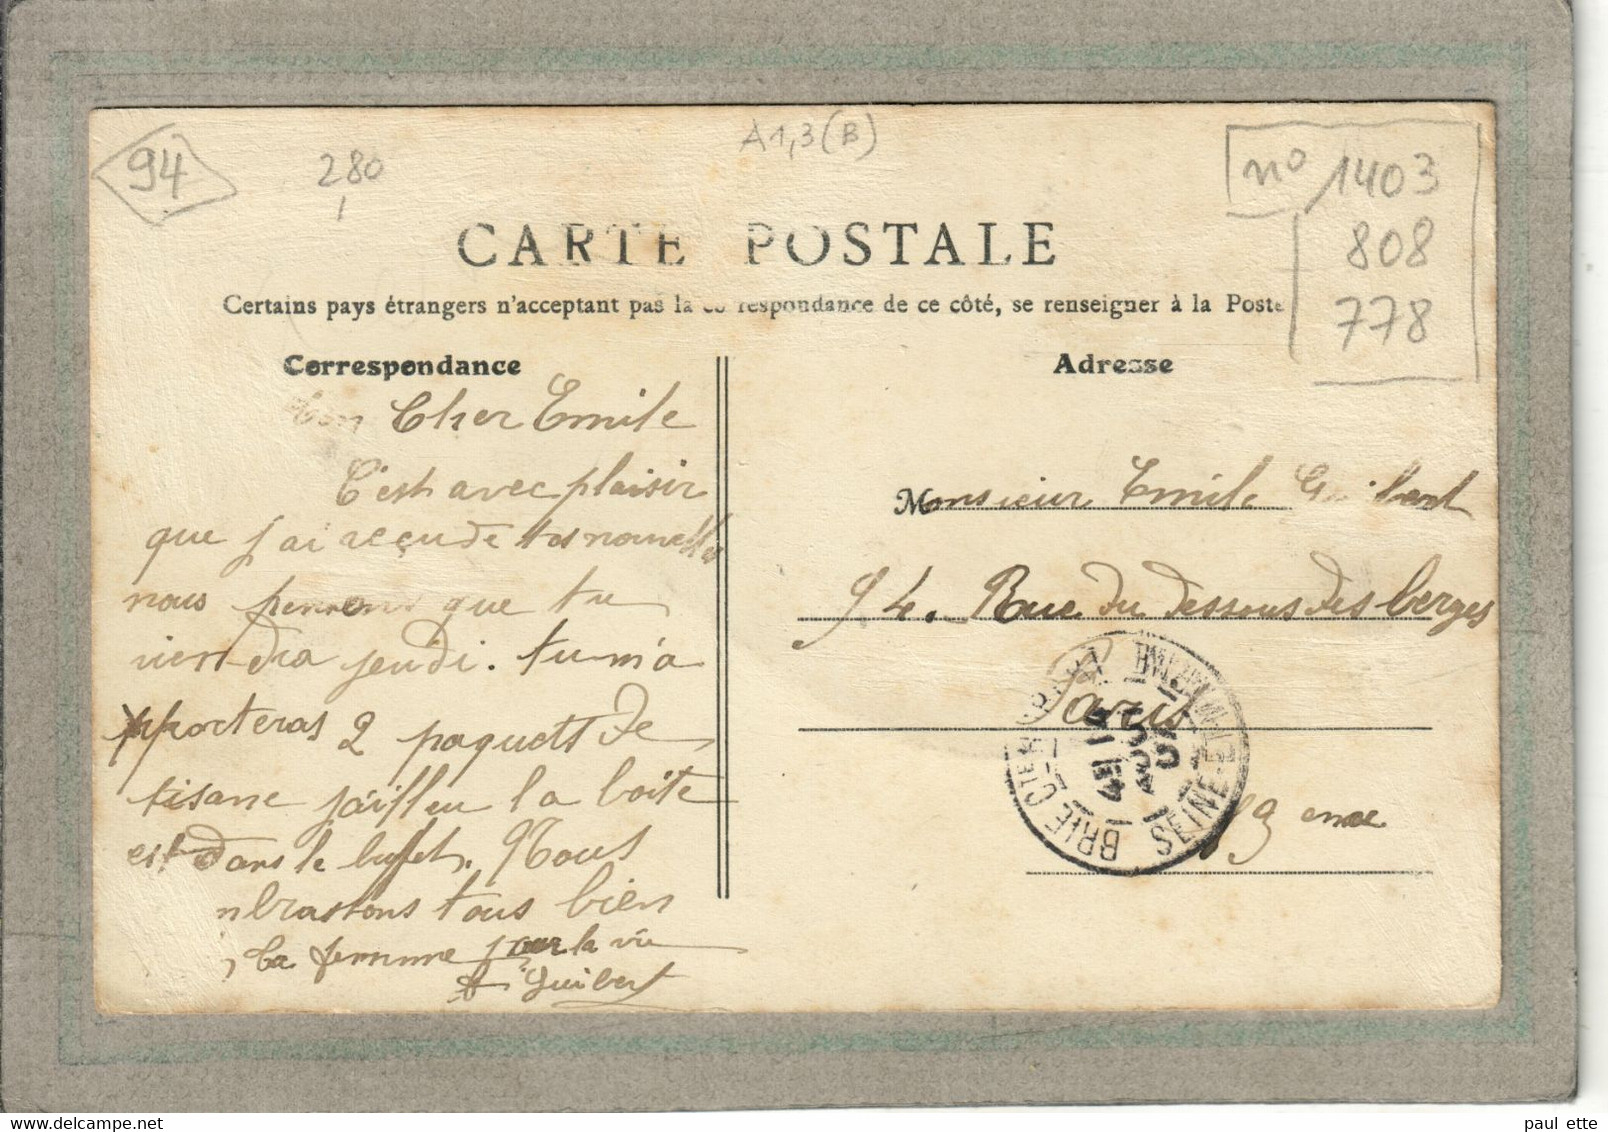 94
280
A1,3(B)
n° 1403
808
778
CARTE POSTALE
Certains pays étrangers n'acceptant pas la correspondance de ce côté, se renseigner à la Poste
Correspondance
Cher Emile
C'est avec plaisir
que j'ai reçu de tes nouvelles
nous pensons que tu
viendra jeudi. tu m'a
pporteras 2 paquets de
tisane la boite
est dans le buffet. Nous
tous bien
Ta femme pour la vie
Guibert
Adresse
Monsieur Emile Guibert
94. Rue du dessous des berges
Paris
19 eme
BRIE CTE ROBERT
SEINE-ET-MARNE